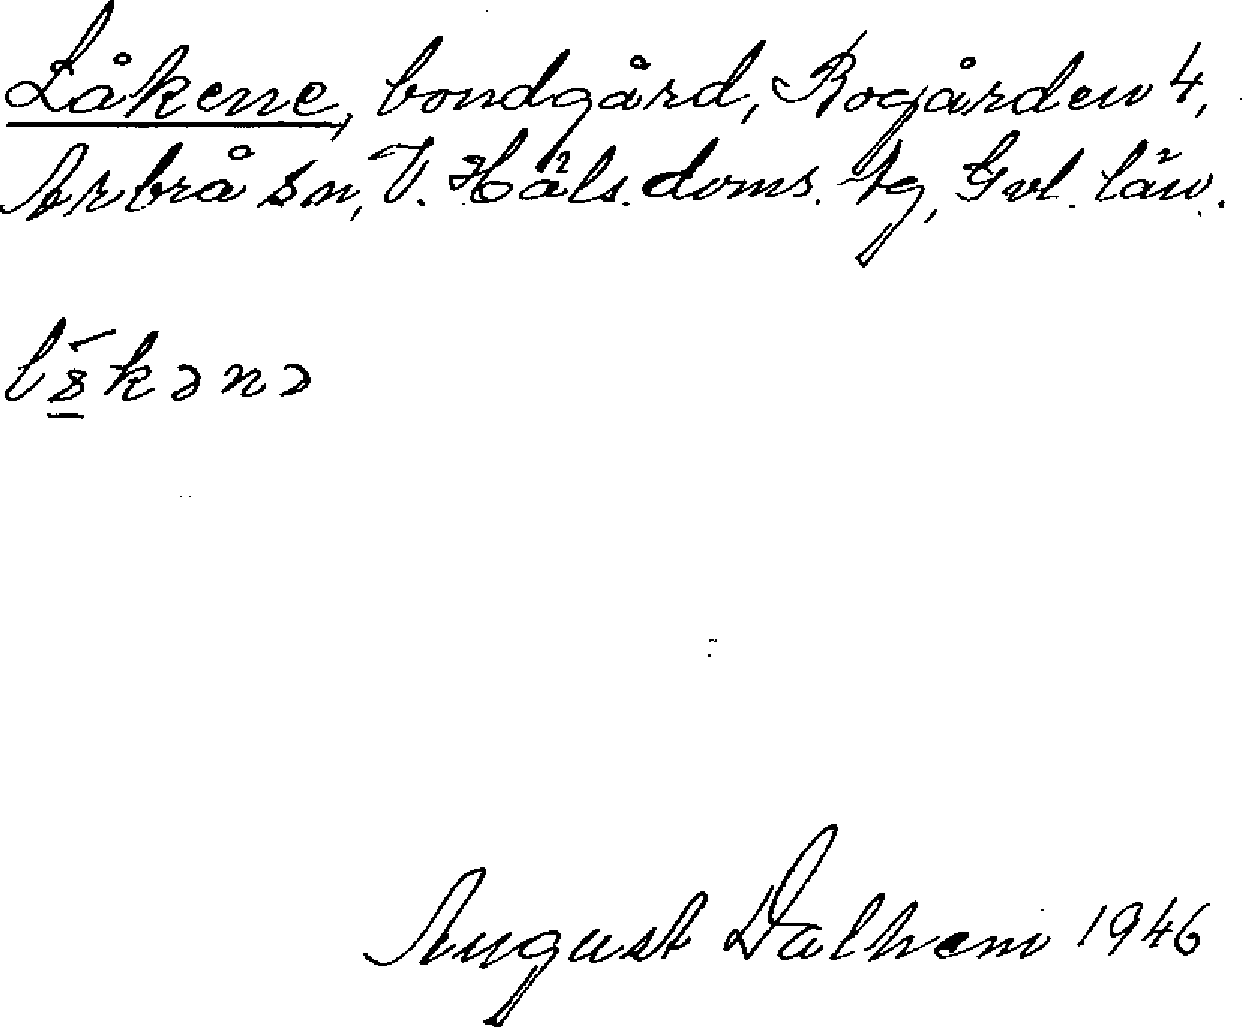 Låkene, bondgård, Rogården 4,
Arbrå sn, V. Häls. doms. tg, Gvl. län.
lə́kənə
August Dalhem 1946